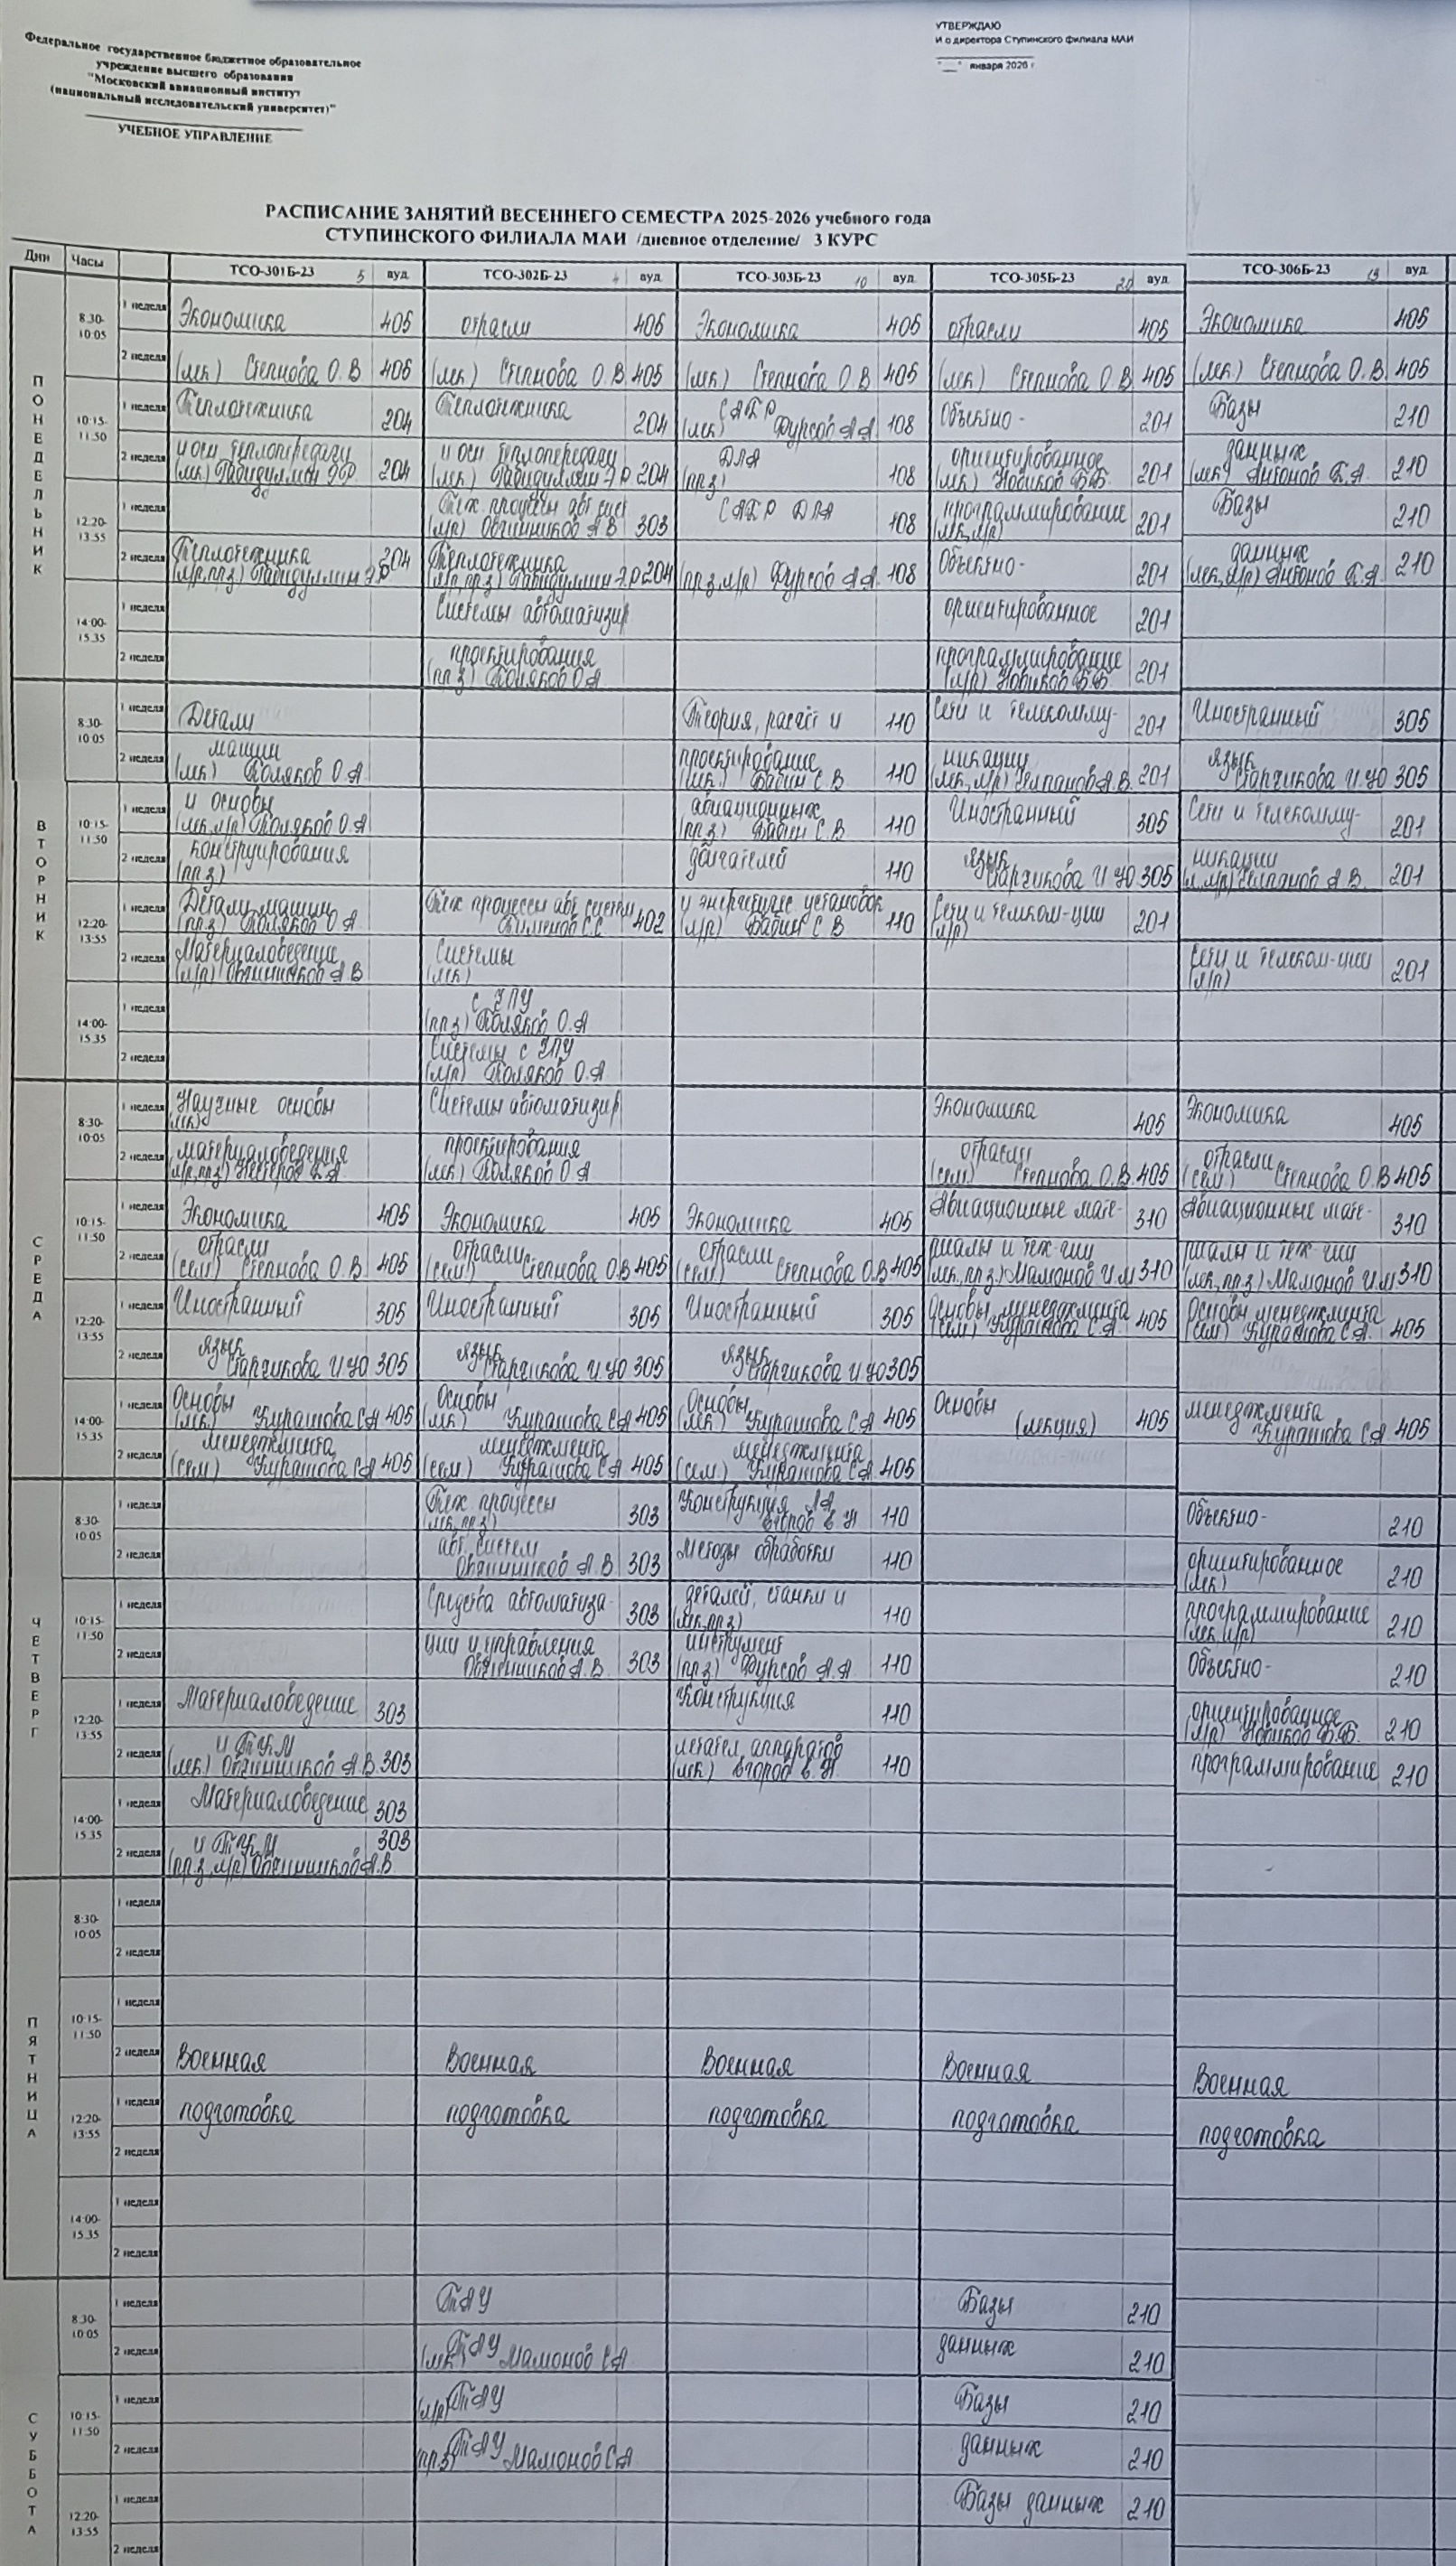 Федеральное государственное бюджетное образовательное
учреждение высшего образования
"Московский авиационный институт
(национальный исследовательский университет)"
УЧЕБНОЕ УПРАВЛЕНИЕ
УТВЕРЖДАЮ
И о директора Ступинского филиала МАИ
"__" января 2026 г
РАСПИСАНИЕ ЗАНЯТИЙ ВЕСЕННЕГО СЕМЕСТРА 2025-2026 учебного года
СТУПИНСКОГО ФИЛИАЛА МАИ /дневное отделение/ 3 КУРС
Дни Часы ТСО-301Б-23 5 ауд ТСО-302Б-23 ауд ТСО-303Б-23 10 ауд ТСО-305Б-23 20 ауд ТСО-306Б-23 ауд
ПОНЕДЕЛЬНИК
8.30-10:05
1 неделя Экономика 405 отрасли 405 Экономика 405 отрасли 405 Экономика 405
2 неделя (лек) Степнова О.В 405 (лек) Степнова О.В 405 (лек) Степнова О В 405 (лек) Степнова О.В 405 (лек) Степнова О.В. 405
10:15-11:50
1 неделя Теплотехника 204 Теплотехника 204 САПР (лек) Фурсов А А 108 Объектно- 201 Базы 210
2 неделя и осн теплопередачи (лек) Габидуллин 204 и осн теплопередачи (лек) Габидуллин Э Р 204 ДЛА (пз) 108 ориентированное (лек) Новиков 201 данных (лек) Антонов 210
12:20-13:55
1 неделя Тех процессы авт сист (л/р) Овчинников А В 303 САПР ДЛА 108 программирование (лек, л/р) 201 Базы 210
2 неделя Теплотехника (л/р, пз) Габидуллин 204 Теплотехника (л/р, пз) Габидуллин Э.Р 204 (пз, л/р) Фурсов А А 108 Объектно- 201 данных (лек, л/р) Антонов 210
14:00-15.35
1 неделя Системы автоматизир ориентированное 201
2 неделя проектирования (пз) Поляков О.А программирование (л/р) Новиков 201
ВТОРНИК
8:30-10:05
1 неделя Детали Теория, расчёт и 110 Сети и телекомму- 201 Иностранный 305
2 неделя машин (лек) Поляков О.А проектирование (лек) Бабин С В 110 никации (лек, л/р) А.В. 201 язык Старчикова И.Ю 305
10:15-11:50
1 неделя и основы (лек, л/р) Поляков О.А авиационных (пз) Бабин С В 110 Иностранный 305 Сети и телекомму- 201
2 неделя конструирования (пз) двигателей 110 язык Старчикова И Ю 305 никации А В. 201
12:20-13:55
1 неделя Детали машин (пз) Поляков О А Тех процессы авт систем С.С 402 и энергетич установок (л/р) Бабин С В 110 Сети и телеком-ции (л/р) 201
2 неделя Материаловедение (л/р) Овчинников А В Системы (лек) Сети и телеком-ции (л/р) 201
14:00-15.35
1 неделя с ЧПУ (пз) Поляков О.А
2 неделя Системы с ЧПУ (л/р) Поляков О.А
СРЕДА
8:30-10:05
1 неделя Научные основы (лк) Системы автоматизир Экономика 405 Экономика 405
2 неделя материаловедения (л/р, пз) проектирования (лек) Поляков О А отрасли (сем) Степнова О.В 405 отрасли (сем) Степнова О.В 405
10:15-11:50
1 неделя Экономика 405 Экономика 405 Экономика 405 Авиационные мате- 310 Авиационные мате- 310
2 неделя отрасли (сем) Степнова О.В. 405 отрасли (сем) Степнова О.В 405 отрасли (сем) Степнова О.В 405 риалы и тех-гии (лек, пз) Мамонов И.М 310 риалы и тех-гии (лек, пз) Мамонов И.М 310
12:20-13:55
1 неделя Иностранный 305 Иностранный 305 Иностранный 305 Основы менеджмента (сем) Курашова С.А. 405 Основы менеджмента (сем) Курашова С А. 405
2 неделя язык Старчикова И Ю 305 язык Старчикова И.Ю 305 язык Старчикова И Ю 305
14:00-15.35
1 неделя Основы (лек) Курашова С А 405 Основы (лек) Курашова С А 405 Основы (лек) Курашова С А 405 Основы (лекция) 405 менеджмента Курашова С А 405
2 неделя менеджмента (сем) Курашова С А 405 менеджмента (сем) Курашова С А 405 менеджмента (сем) Курашова С А 405
ЧЕТВЕРГ
8:30-10:05
1 неделя Тех процессы (лек, пз) 303 Конструкция ЛА 110 Объектно- 210
2 неделя авт. систем Овчинников А.В 303 методы обработки 110 ориентированное (лек) 210
10:15-11:50
1 неделя Средства автоматиза- 303 деталей, станки и (лек, пз) 110 программирование (лек, л/р) 210
2 неделя ции и управления Овчинников А.В. 303 инструмент (пз) Фурсов А.А 110 Объектно- 210
12:20-13:55
1 неделя Материаловедение 303 Конструкция 110 ориентированное (л/р) Новиков 210
2 неделя и ТКМ (лек) Овчинников А.В. 303 летател. аппаратов (лек) 110 программирование 210
14:00-15.35
1 неделя Материаловедение 303
2 неделя и ТКМ (пз, л/р) Овчинников А.В. 303
ПЯТНИЦА
8:30-10:05
1 неделя
2 неделя
10:15-11:50
1 неделя
2 неделя Военная Военная Военная Военная Военная
12:20-13:55
1 неделя подготовка подготовка подготовка подготовка подготовка
2 неделя
14:00-15.35
1 неделя
2 неделя
СУББОТА
8:30-10:05
1 неделя ТАУ Базы 210
2 неделя (лек) ТАУ Мамонов С А данных 210
10:15-11:50
1 неделя (л/р) ТАУ Базы 210
2 неделя (пз) ТАУ Мамонов С А данных 210
12:20-13:55
1 неделя Базы данных 210
2 неделя